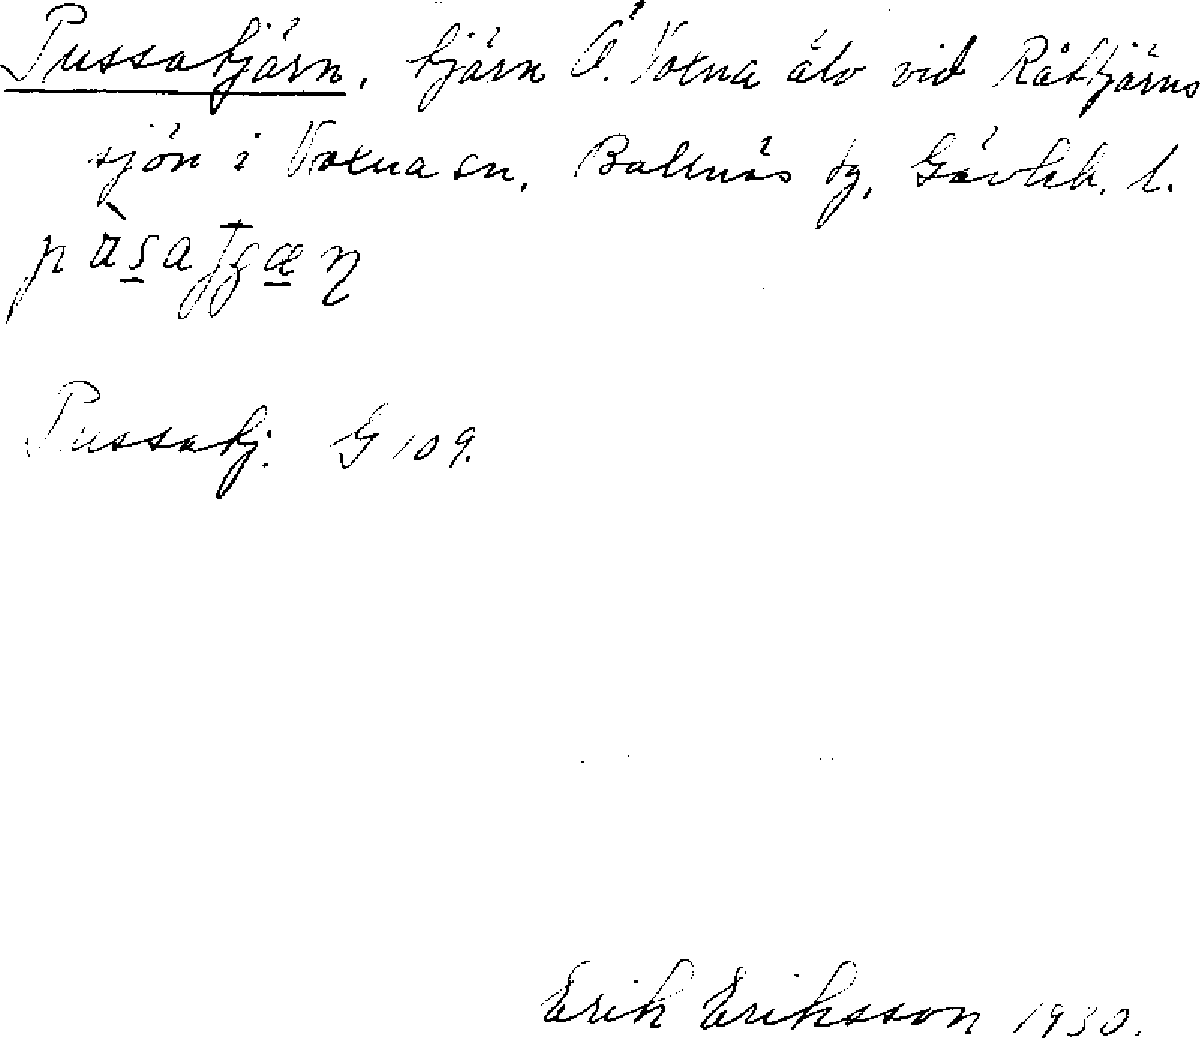 Pussatjärn, tjärn Ö. Voxna älv vid Råtjärns
sjön i Voxna sn, Bollnäs tg, Gävleb. l.
Pussatj. G 109.
Erik Eriksson 1930.